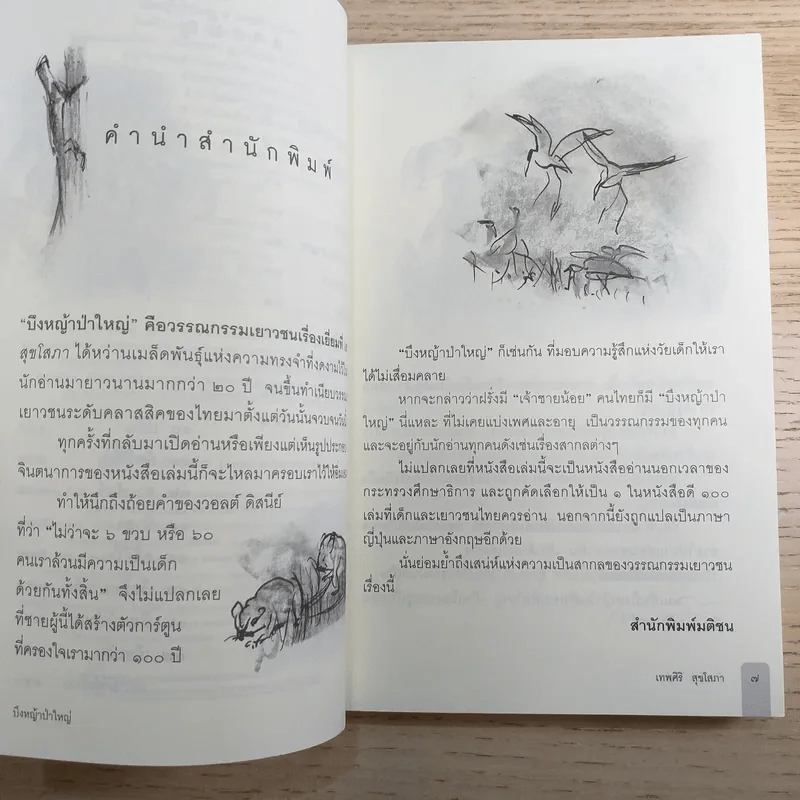 คำนำสำนักพิมพ์
“บึงหญ้าป่าใหญ่” คือวรรณกรรมเยาวชนเรื่องเยี่ยมที่
สุขโสภา ได้หว่านเมล็ดพันธุ์แห่งความทรงจำที่งดงามไว้ใน
นักอ่านมายาวนานมากกว่า ๒๐ ปี จนขึ้นทำเนียบวรรณ
เยาวชนระดับคลาสสิคของไทยมาตั้งแต่วันนั้นจวบจนวันนี้
ทุกครั้งที่กลับมาเปิดอ่านหรือเพียงแต่เห็นรูปประกอบ
จินตนาการของหนังสือเล่มนี้ก็จะไหลมาครอบเราไว้ให้
ทำให้นึกถึงถ้อยคำของวอลต์ ดิสนีย์
ที่ว่า “ไม่ว่าจะ ๖ ขวบ หรือ ๖๐
คนเราล้วนมีความเป็นเด็ก
ด้วยกันทั้งสิ้น” จึงไม่แปลกเลย
ที่ชายผู้นี้ได้สร้างตัวการ์ตูน
ที่ครองใจเรามากว่า ๑๐๐ ปี
บึงหญ้าป่าใหญ่
“บึงหญ้าป่าใหญ่” ก็เช่นกัน ที่มอบความรู้สึกแห่งวัยเด็กให้เรา
ได้ไม่เสื่อมคลาย
หากจะกล่าวว่าฝรั่งมี “เจ้าชายน้อย” คนไทยก็มี “บึงหญ้าป่า
ใหญ่” นี่แหละ ที่ไม่เคยแบ่งเพศและอายุ เป็นวรรณกรรมของทุกคน
และจะอยู่กับนักอ่านทุกคนดังเช่นเรื่องสากลต่างๆ
ไม่แปลกเลยที่หนังสือเล่มนี้จะเป็นหนังสืออ่านนอกเวลาของ
กระทรวงศึกษาธิการ และถูกคัดเลือกให้เป็น ๑ ในหนังสือดี ๑๐๐
เล่มที่เด็กและเยาวชนไทยควรอ่าน นอกจากนี้ยังถูกแปลเป็นภาษา
ญี่ปุ่นและภาษาอังกฤษอีกด้วย
นั่นย่อมย้ำถึงเสน่ห์แห่งความเป็นสากลของวรรณกรรมเยาวชน
เรื่องนี้
สำนักพิมพ์มติชน
เทพศิริ สุขโสภา ๗